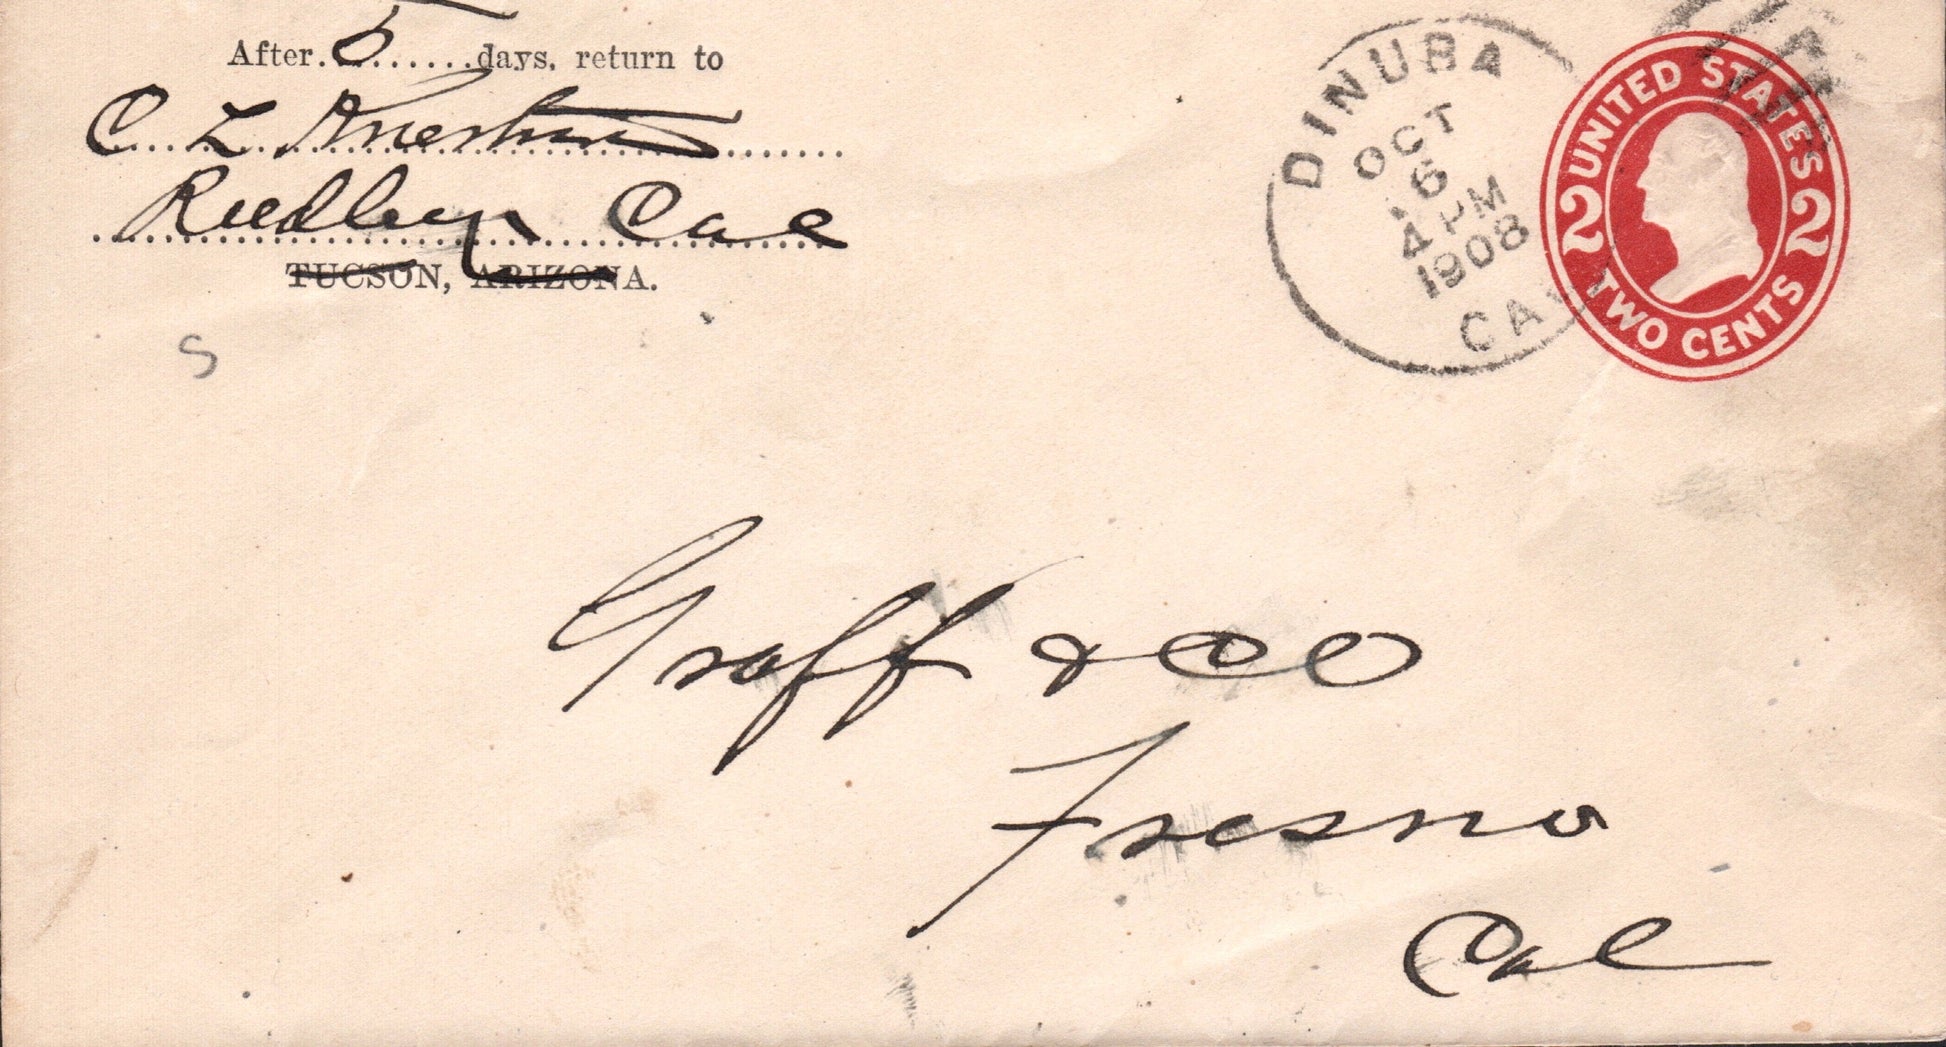 After 5 days, return to
C. L.
Reedley Cal
TUCSON, ARIZONA.
S
DINUBA
OCT
6
4 PM
1908
CAL
UNITED STATES
2 2
TWO CENTS
Graff & Co
Fresno
Cal